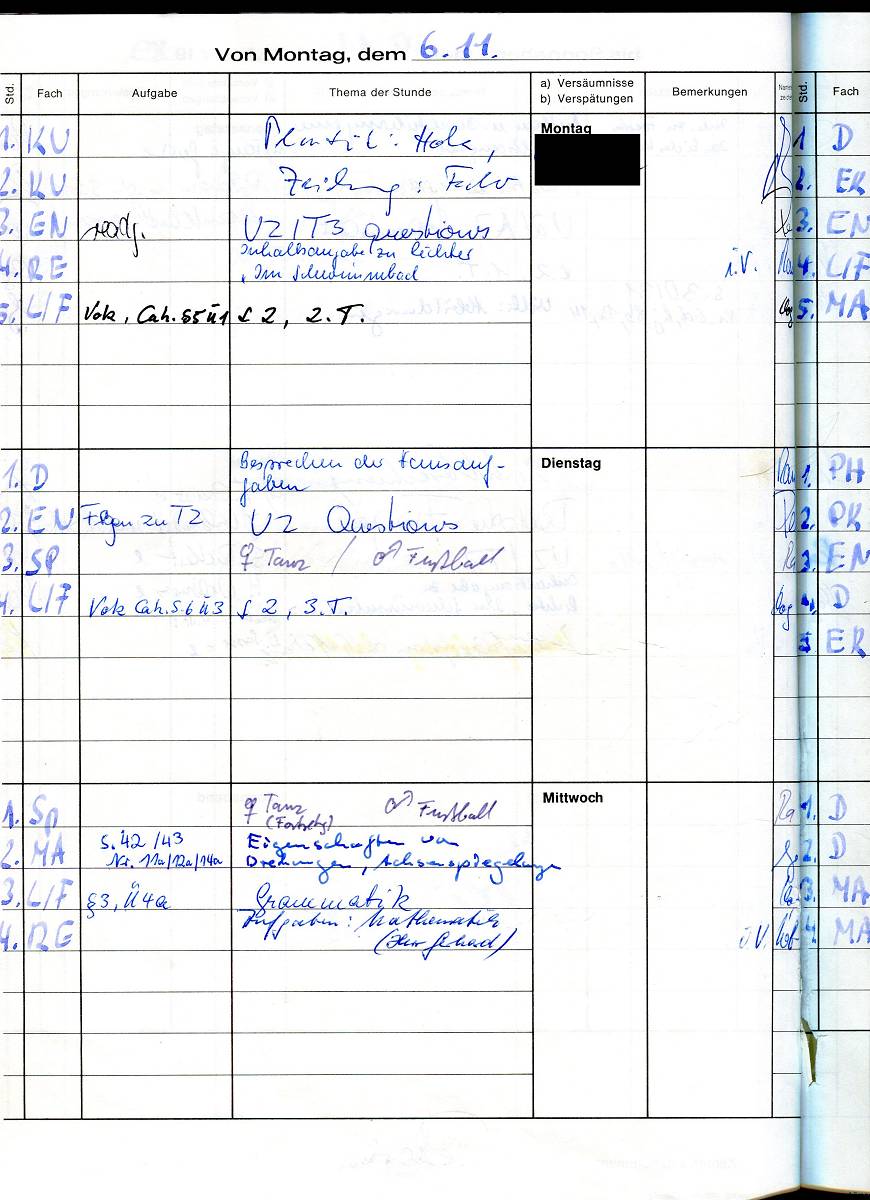 Von Montag, dem 6.11.
Std. Fach Aufgabe Thema der Stunde a) Versäumnisse b) Verspätungen Bemerkungen Std. Fach
Montag
1. KU Plastik: Holz, 1 D
2. KU Zeichnung: Feder 2. EK
3. EN U2/T3 questions 3. EN
4. RE Inhaltsangabe zu lichter i.V. 4. L/F
"Im Schwimmbad
5. L/F Vok, Cah. S5Ü1 § 2, 2.T. 5. MA
Dienstag
1. D Besprechen der Hausauf- 1. PH
gaben
2. EN Fragen zu T2 U2 Questions 2. PK
3. SP ♀ Tanz / ♂ Fußball 3. EN
4. L/F Vok Cah. S.6 Ü3 § 2, 3.T. 4. D
5 EK
Mittwoch
1. Sp ♀ Tanz ♂ Fußball 1. D
(Fortsetzg)
2. MA S. 42/43 Eigenschaften von 2. D
Nr. 11a/12a/14a Drehungen, Achsenspiegelungen
3. L/F §3, Ü4a Grammatik 3. MA
4. RE Aufgaben: Mathematik i.V. 4. MA
(Herr